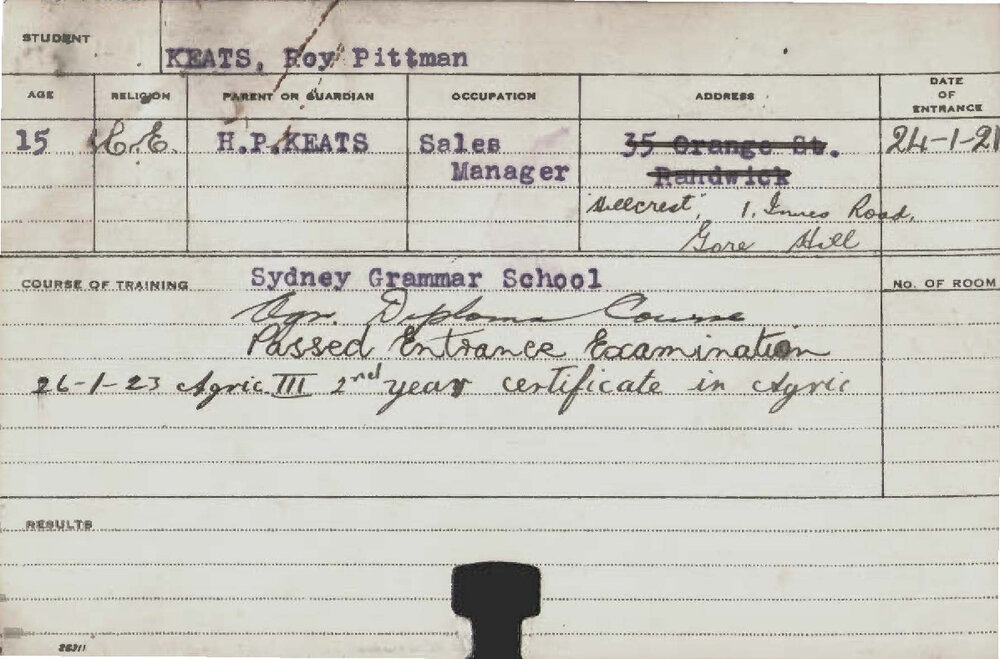 STUDENT
KEATS, Roy Pittman
AGE RELIGION PARENT OR GUARDIAN OCCUPATION ADDRESS DATE OF ENTRANCE
15 C.E. H.P.KEATS Sales Manager 35 Orange St. Randwick 24-1-21
"Hillcrest", 1. Innes Road,
Gore Hill
COURSE OF TRAINING Sydney Grammar School NO. OF ROOM
Agr. Diploma Course
Passed Entrance Examination
26-1-23 Agric III 2nd year certificate in Agric
RESULTS